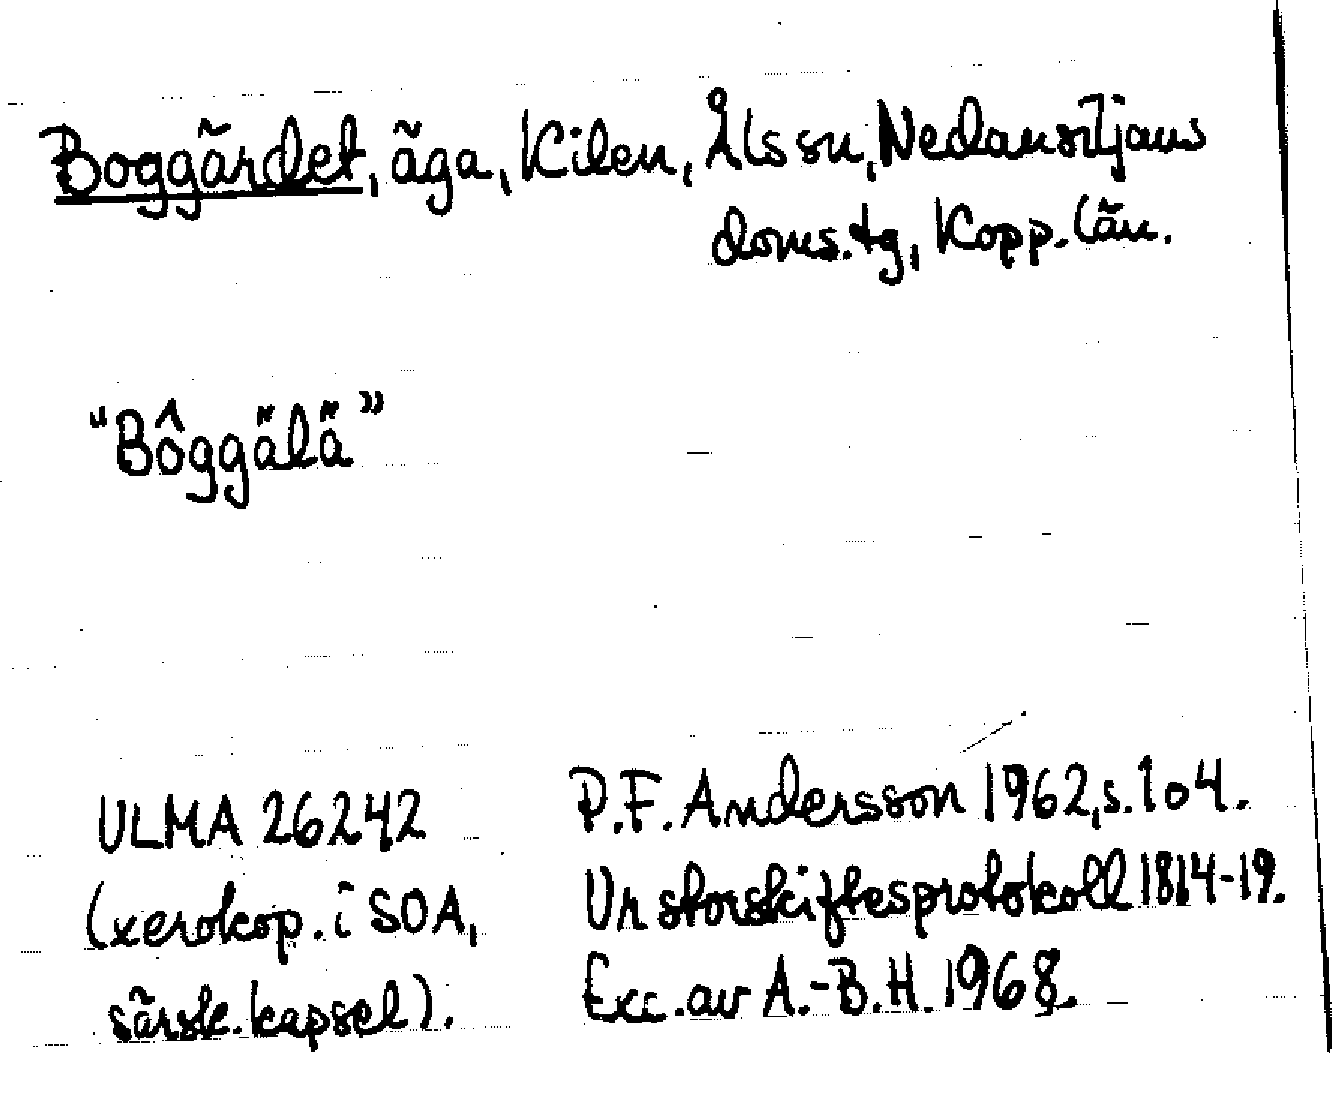 Boggärdet, äga, Kilen, Åls sn, Nedansiljans
doms.tg, Kopp. län.
"Bôggälä"
ULMA 26242
(xerokop. i SOA,
särsk. kapsel).
P.F. Andersson 1962, s. 104.
Ur storskiftesprotokoll 1814-19.
Exc. av A.-B.H. 1968.